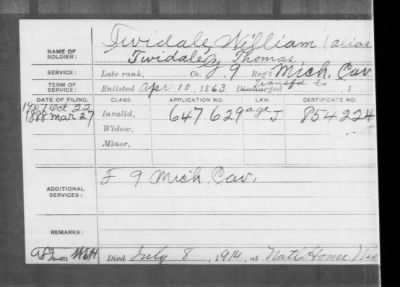 NAME OF SOLDIER: Twidale, William (alias
Twidale, Thomas,
SERVICE: Late rank, Co. J, 9 Reg't Mich. Cav
TERM OF SERVICE: Enlisted Apr 10 1863 Discharged Transf'd to , 1
DATE OF FILING. CLASS. APPLICATION NO. LAW. CERTIFICATE NO.
1907 Oct 22
1888 Mar 27 Invalid, 647629 age J 854224
Widow,
Minor,
ADDITIONAL SERVICES: F 9 Mich Cav.
REMARKS:
Died July 8, 1914, at Nat'l Home